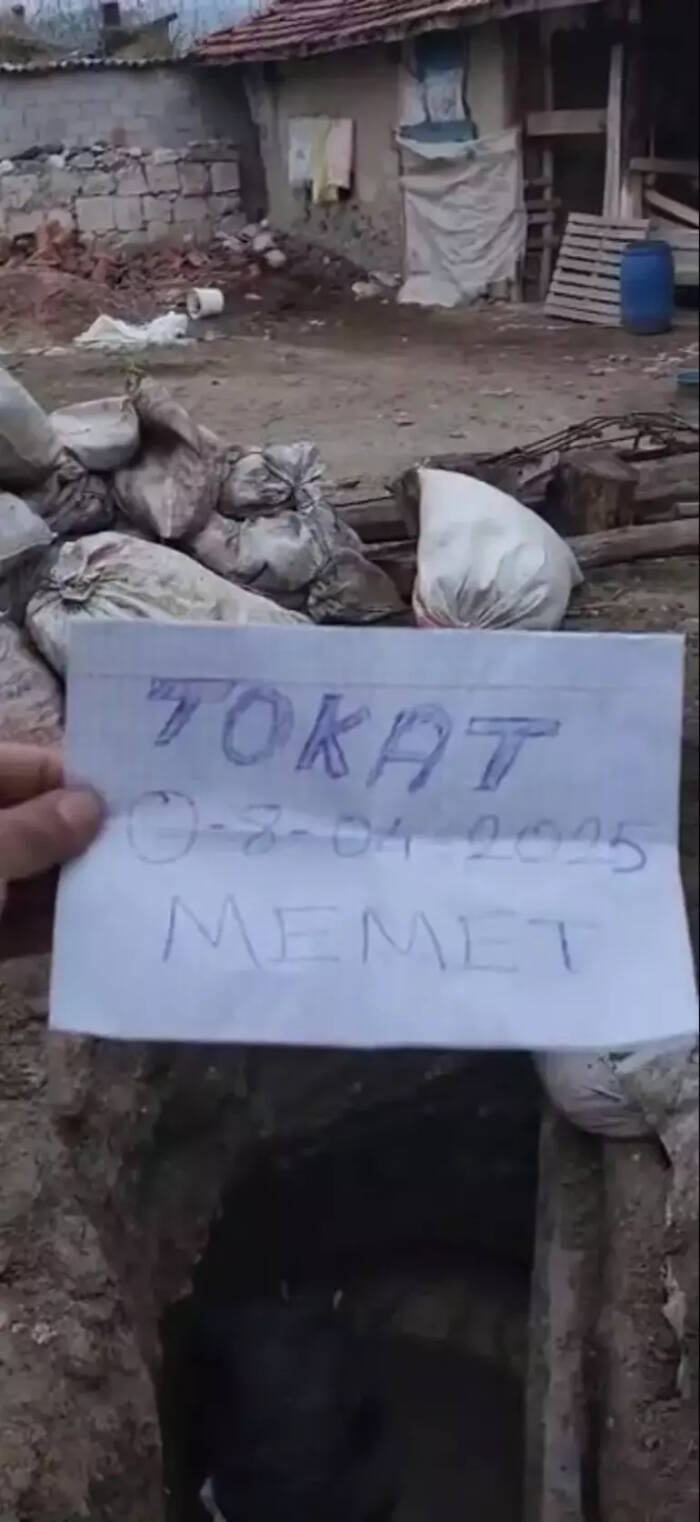 TOKAT
0-8-04 2025
MEMET